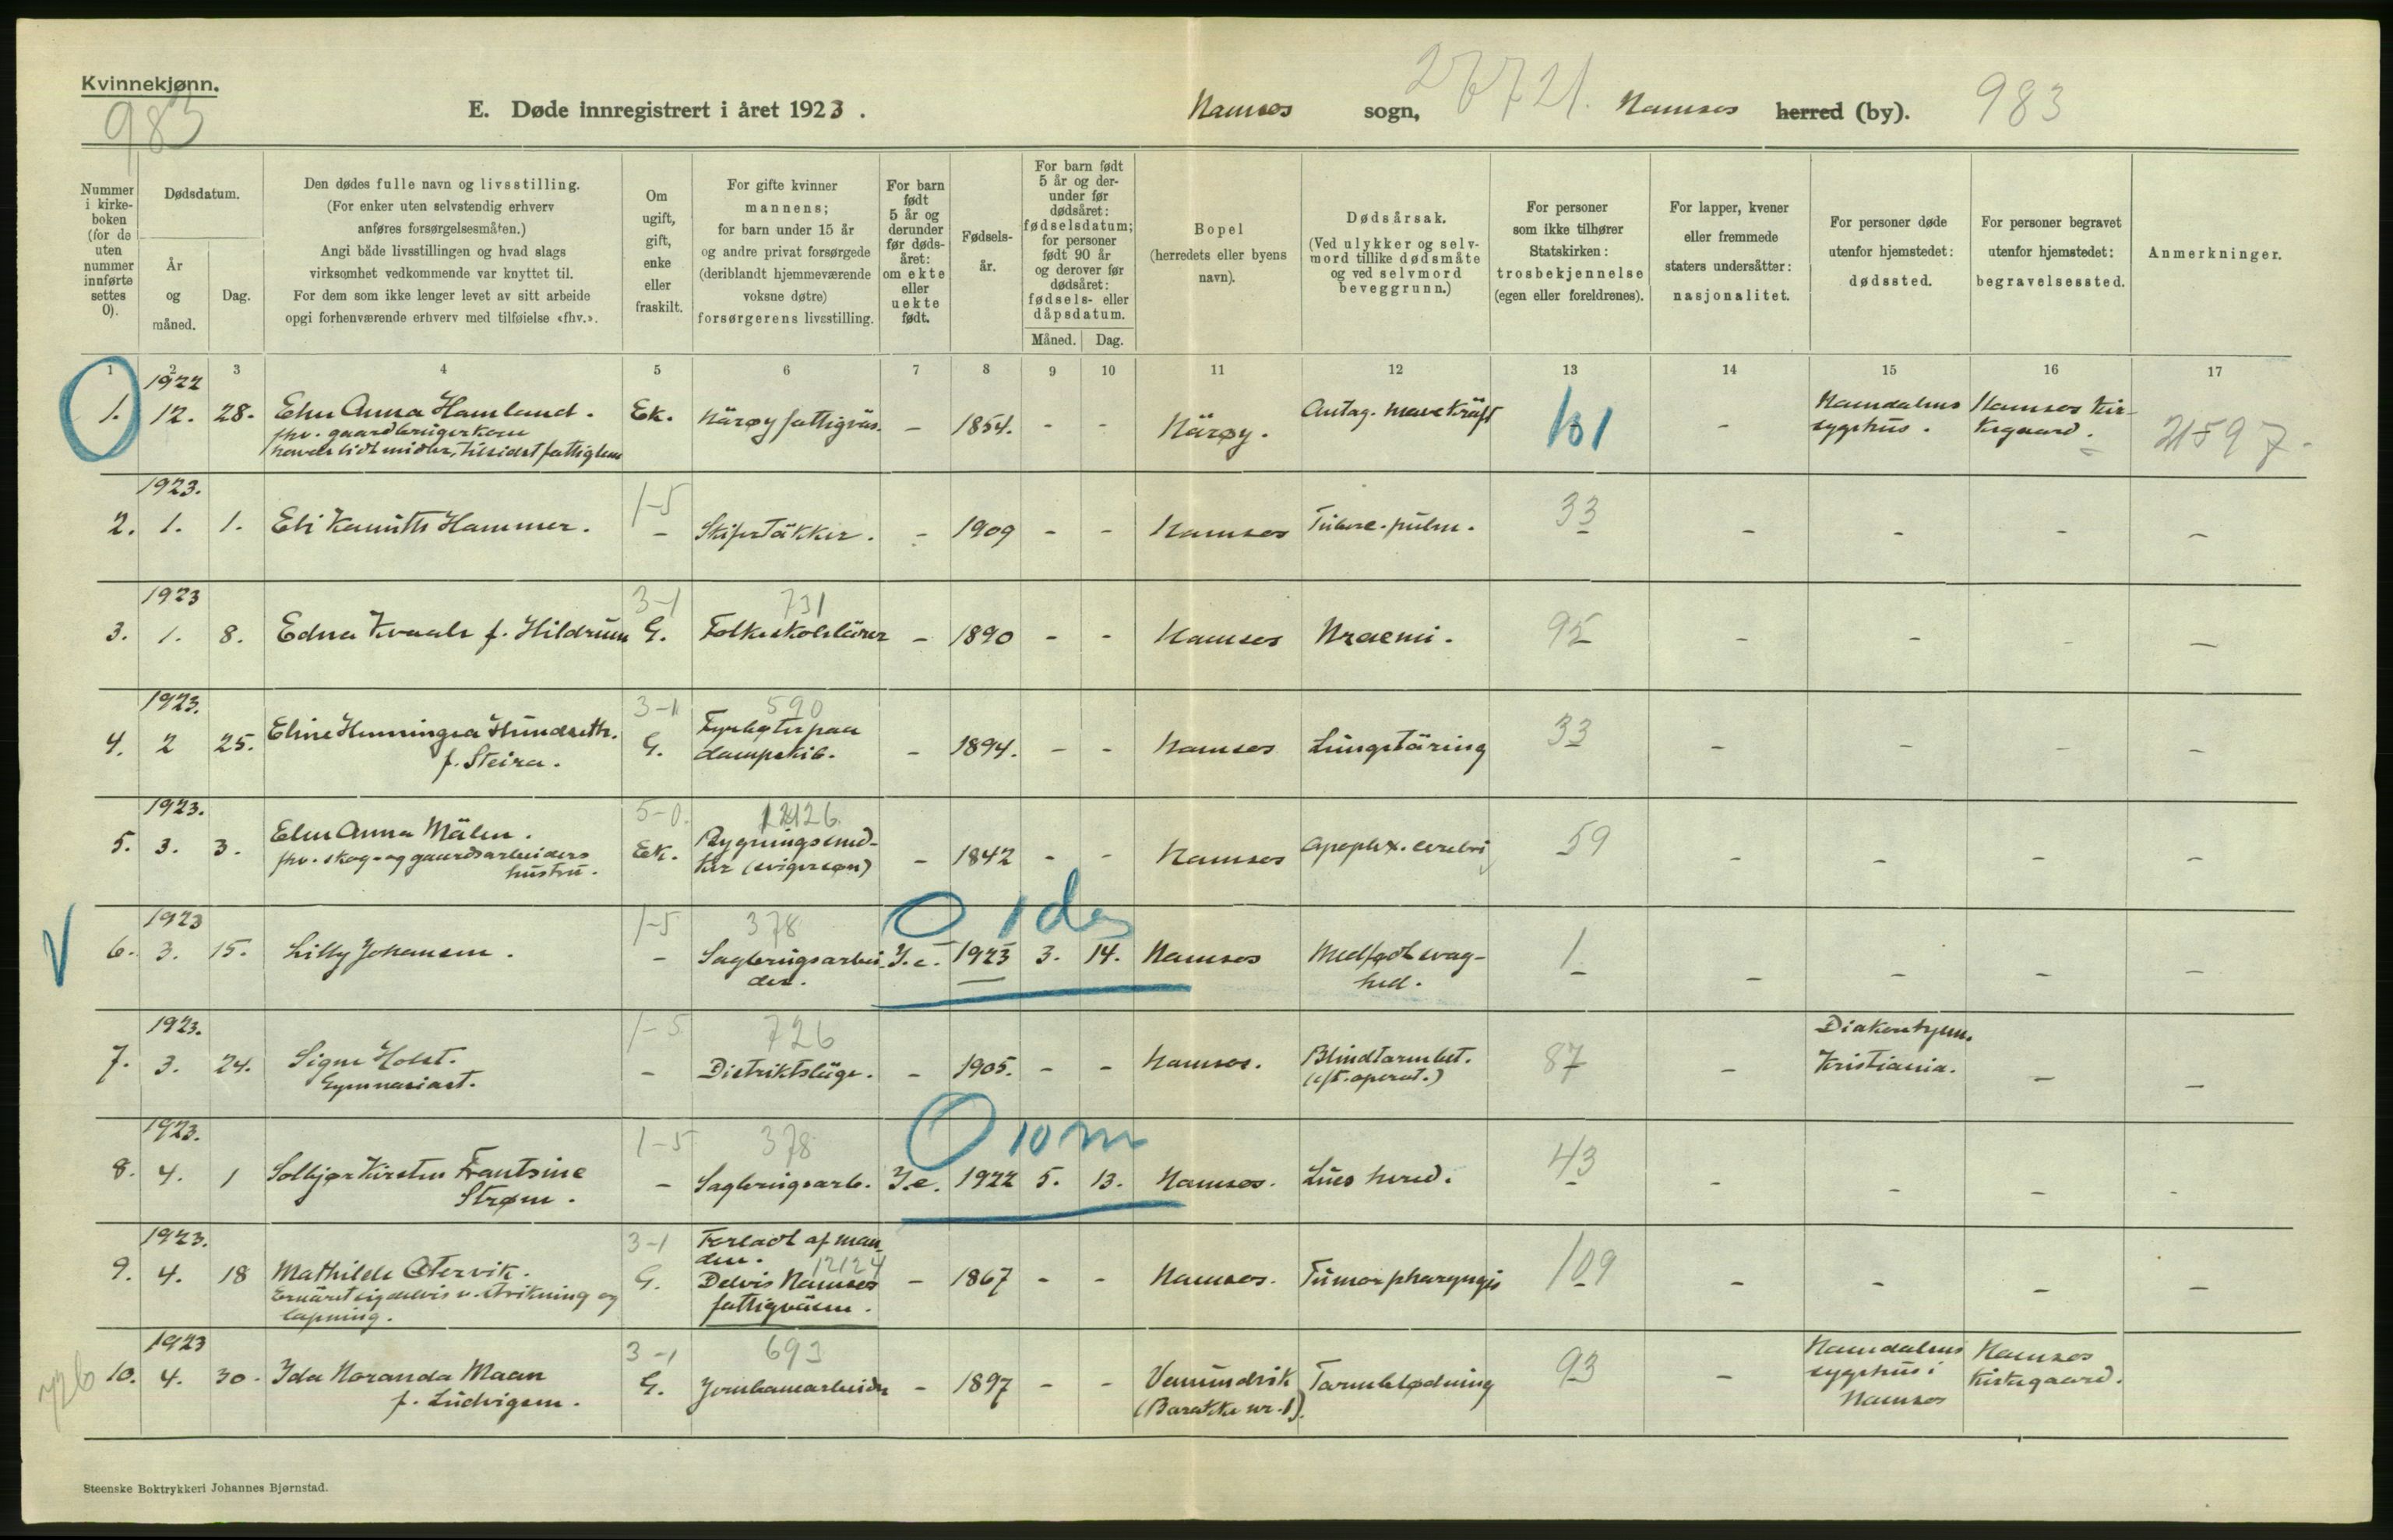 Kvinnekjønn.
983
E. Døde innregistrert i året 1923.
Namsos sogn, Namsos herred (by).
27721.
983
Nummer i kirkeboken (for de uten nummer innførte settes 0).
Dødsdatum.
År og måned.
Dag.
Den dødes fulle navn og livsstilling.
(For enker uten selvstendig erhverv anføres forsørgelsesmåten.)
Angi både livsstillingen og hvad slags virksomhet vedkommende var knyttet til.
For dem som ikke lenger levet av sitt arbeide opgi forhenværende erhverv med tilføielse «fhv.».
Om ugift, gift, enke eller fraskilt.
For gifte kvinner mannens; for barn under 15 år og andre privat forsørgede (deriblandt hjemmeværende voksne døtre) forsørgerens livsstilling.
For barn født 5 år og derunder før dødsåret: om ekte eller uekte født.
Fødselsår.
For barn født 5 år og derunder før dødsåret: fødselsdatum; for personer født 90 år og derover før dødsåret: fødsels- eller dåpsdatum.
Måned.
Dag.
Bopel (herredets eller byens navn).
Dødsårsak.
(Ved ulykker og selvmord tillike dødsmåte og ved selvmord beveggrunn.)
For personer som ikke tilhører Statskirken: trosbekjennelse (egen eller foreldrenes).
For lapper, kvener eller fremmede staters undersåtter: nasjonalitet.
For personer døde utenfor hjemstedet: dødssted.
For personer begravet utenfor hjemstedet: begravelsessted.
Anmerkninger.
1 2 3 4 5 6 7 8 9 10 11 12 13 14 15 16 17
1922
1. 12. 28. Elen Anna Hamland. Ek. Närøy fattigväs. - 1854. - - Närøy. Antag. mavekräft 101 - Namdalens sygehus. Namsos Kirkegaard. 21597.
fhv. gaardbrugerkone
tilsidst fattiglem
1923.
1-5
2. 1. 1. Hammer. - Skifertäkker. - 1909 - - Namsos Tuberc. pulm. 33 - - - -
1923
3-1 731
3. 1. 8. Edna Kvaale f. Hildrum G. Folkeskolelärer - 1890 - - Namsos Uraemi. 95 - - - -
1923.
3-1 590
4. 2 25. Eline Henningea Hundseth. G. Fyrbøter paa - 1894. - - Namsos Lungetäring 33 - - - -
f. Steira. dampskib.
1923.
5-0. 12126
5. 3. 3. Elen Anna Mälen. Ek. Bygningssnedker (svigersøn) - 1842 - - Namsos Apoplex. cerebri 59 - - - -
fhv. skog- og gaardsarbeiders
hustru.
1923
1-5 378 0 1 dag
V 6. 3. 15. Lilly Johansen. - Sagbrugsarbeider. I.e. 1923 3. 14. Namsos Medfødt svaghed. 1 - - - -
1923.
1-5 726
7. 3. 24. Signe Holst. - Distriktsläge. - 1905. - - Namsos. Blindtarmbet. 87 - Diakonhjem. Kristiania. - -
Gymnasiast. (eft. operat.)
1923.
1-5 378 0 10 m
8. 4. 1 Solbjør Kirsten Frantsine - Sagbrugsarb. I.e. 1922 5. 13. Namsos. Lues hered. 43 - - - -
Strøm.
1923.
3-1 Forladt af manden. 12124
9. 4. 18 Mathilde Otervik. G. Delvis Namsos fattigväsen. - 1867 - - Namsos. Tumor pharyngis 109 - - - -
Ernäret sig delvis v. strikning og
lapning.
1923
3-1 693
726 10. 4. 30. Ida Noranda Maan G. Jernbanearbeider - 1897 - - Vemundvik Tarmblødning 93 - Namdalens sygehus i Namsos Namsos Kirkegaard.
f. Ludvigsen. (Barakke nr. 1).
Steenske Boktrykkeri Johannes Bjørnstad.